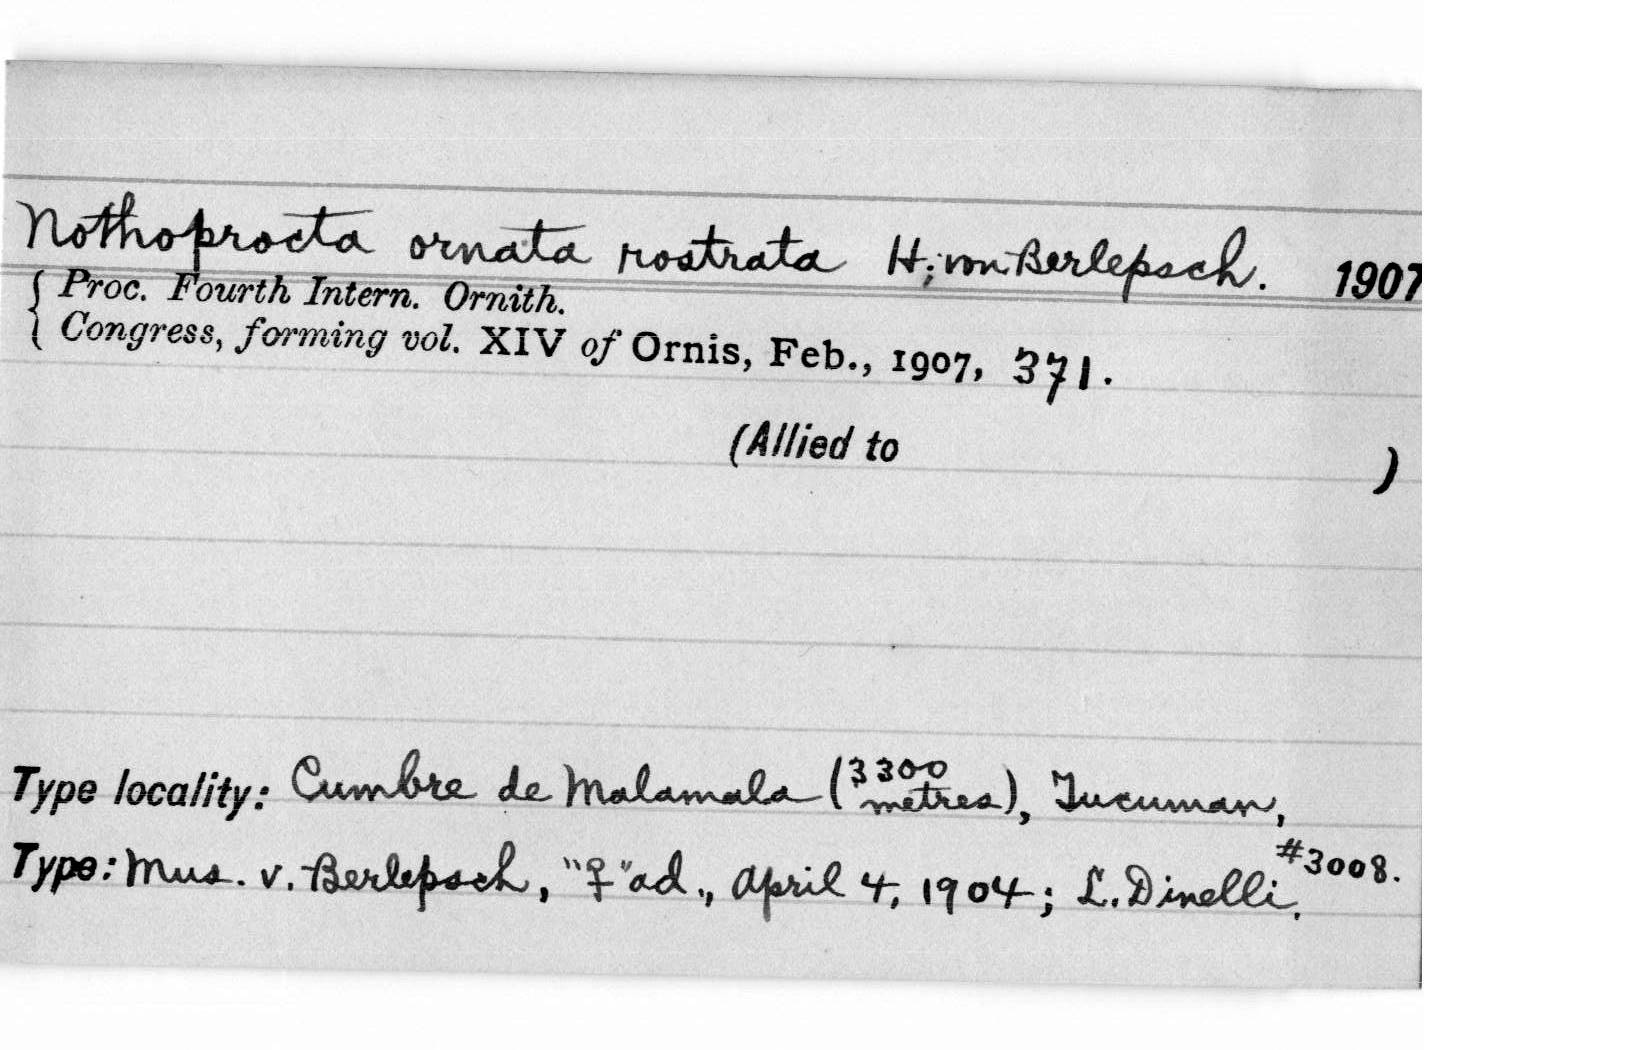 Nothoprocta ornata rostrata H. von Berlepsch. 1907
Proc. Fourth Intern. Ornith.
Congress, forming vol. XIV of Ornis, Feb., 1907, 371.
(Allied to )
Type locality: Cumbre de Malamala (3300 metres), Tucuman,
Type: Mus. v. Berlepsch, "♀" ad., April 4, 1904; L. Dinelli, #3008.